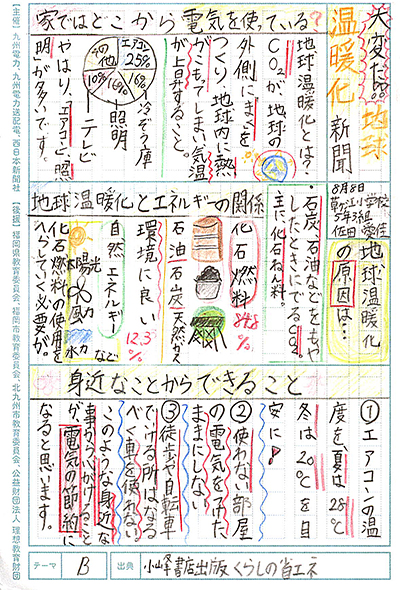 大変だ。地球
温暖化新聞
地球温暖化とは？
CO₂が、地球の
外側にまくを
つくり、地球内に熱
がこもってしまい、気温
が上昇すること。
家ではどこから電気を使っている？
エアコン
25%
16%
16%
10%
その
他
冷ぞう庫
照明
テレビ
やはり、「エアコン、照
明」が多いです。
8月8日
小学校
5年3組
地球温暖化
の原因は…
・石炭、石油などをもや
したときにでるCO₂。
主に化石ねん料。
地球温暖化とエネルギーの関係
化石燃料
石油 石炭 天然ガス
環境に良い
12.3
%
自然エネルギー
太陽光
風力
水力
など
化石燃料の使用を
へらしていく必要が。
身近なことからできること
①エアコンの温
度を、夏は28℃
冬は20℃を目
安に！
②使わない部屋
の電気をつけた
ままにしない
③徒歩や自転車
でいける所はなる
べく車を使わない
このような身近な
事から心がけること
が、電気の節約に
なると思います。
テーマ B
出典 小峰書店出版 くらしの省エネ
【主催】九州電力、九州電力送配電、西日本新聞社
【後援】福岡県教育委員会、福岡市教育委員会、北九州市教育委員会、公益財団法人 理想教育財団